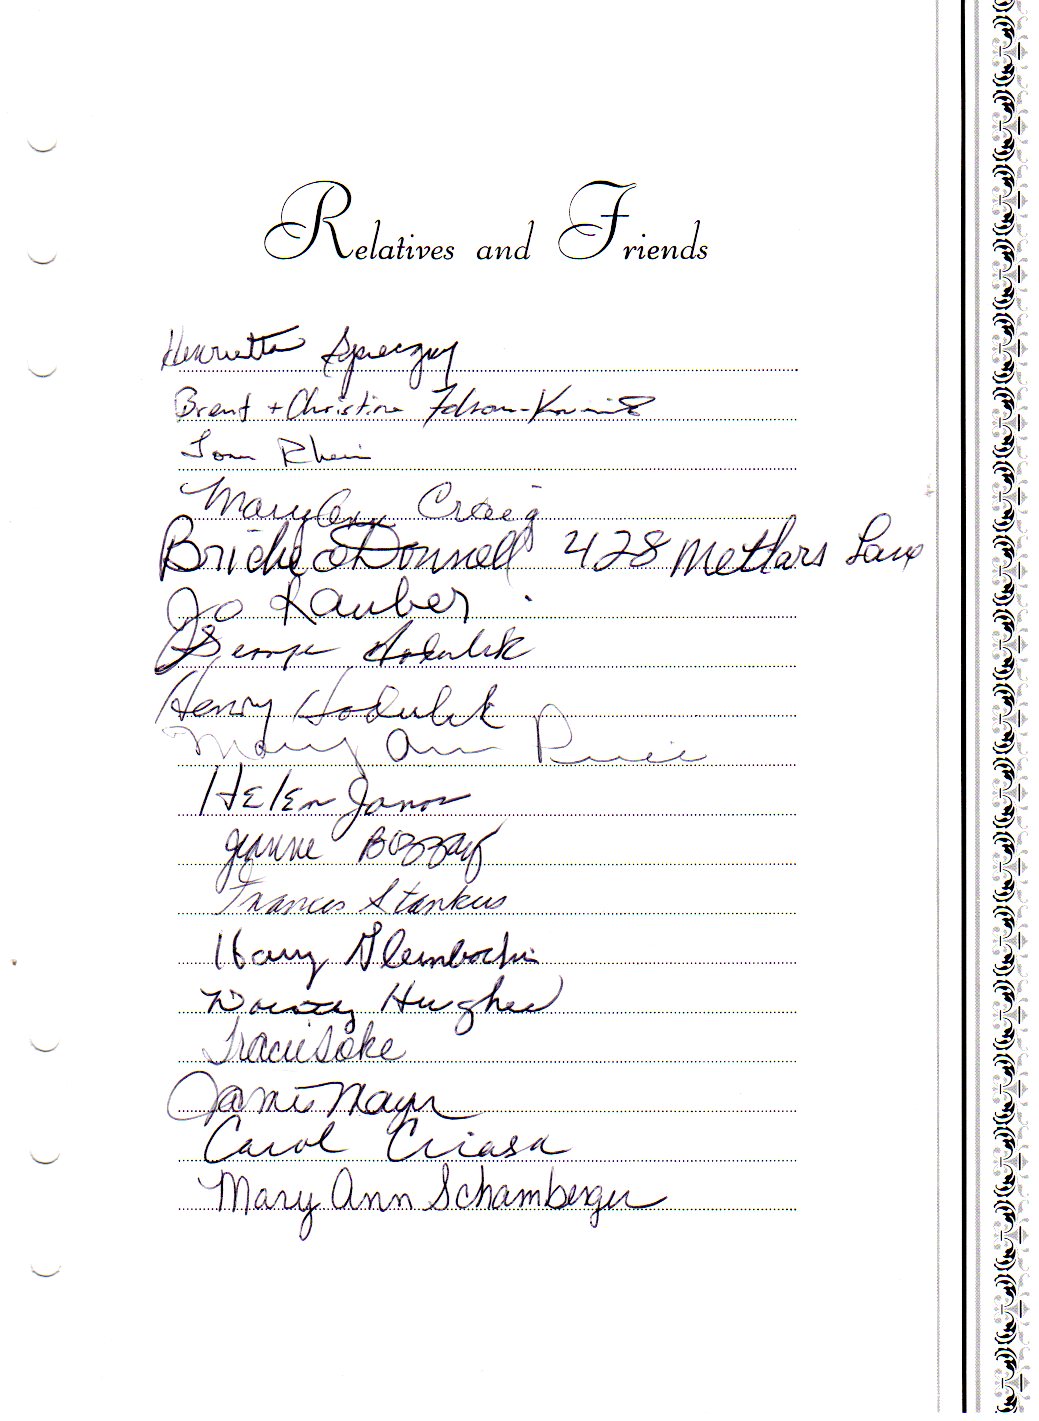 Relatives and Friends
Henrietta
Brent + Christine
Tom Rhein
Mary Ann Craig
O'Donnell 428 Metlars Lane
Jo Rauber
George Hodulik
Henry Hodulik
Mary Ann
Helen Janos
Jeanne Bozzay
Frances Stankus
Harry Glembocki
Dorothy Hughes
Traci Soke
Jamie Mayer
Carol Criasa
Mary Ann Schamberger